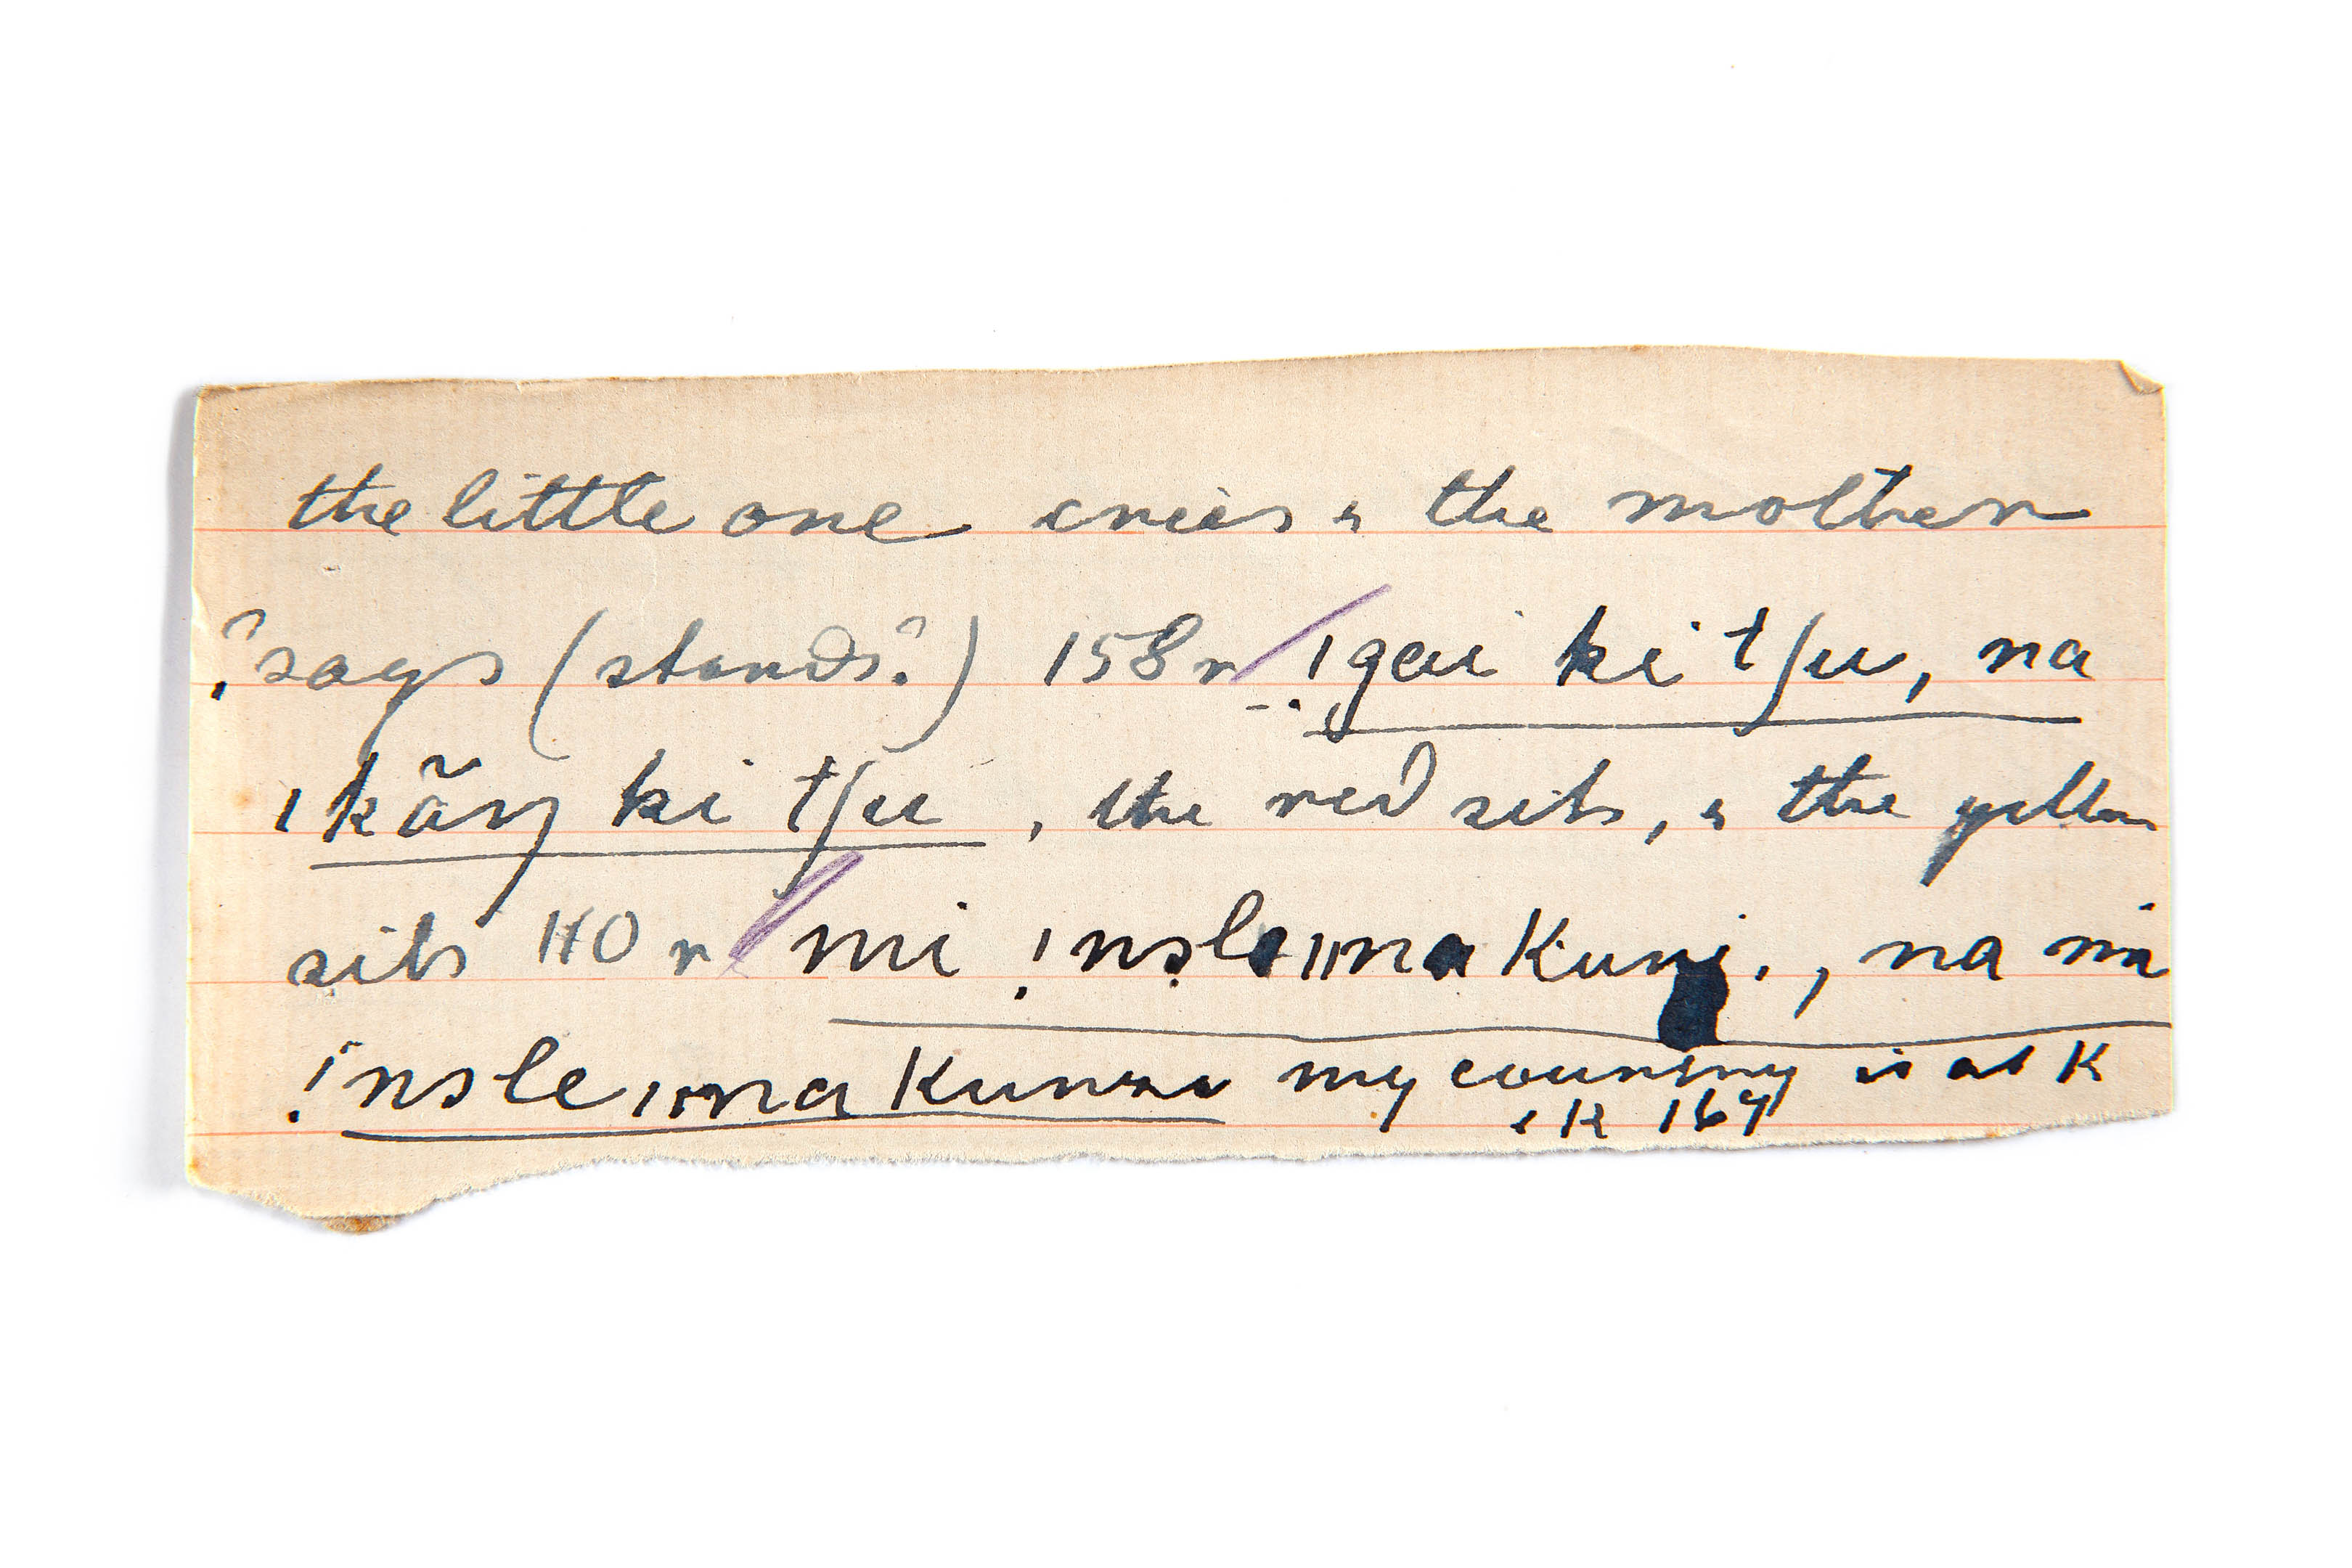 the little one cries & the mother
? says (stands?) 158 r ǃgai ki tʃu, na
ǀkãŋ ki tʃu, the red sits, & the yellow
sits 110 r ni na Kuni., na
ǃnsle ǁna my country is at K
& K 167